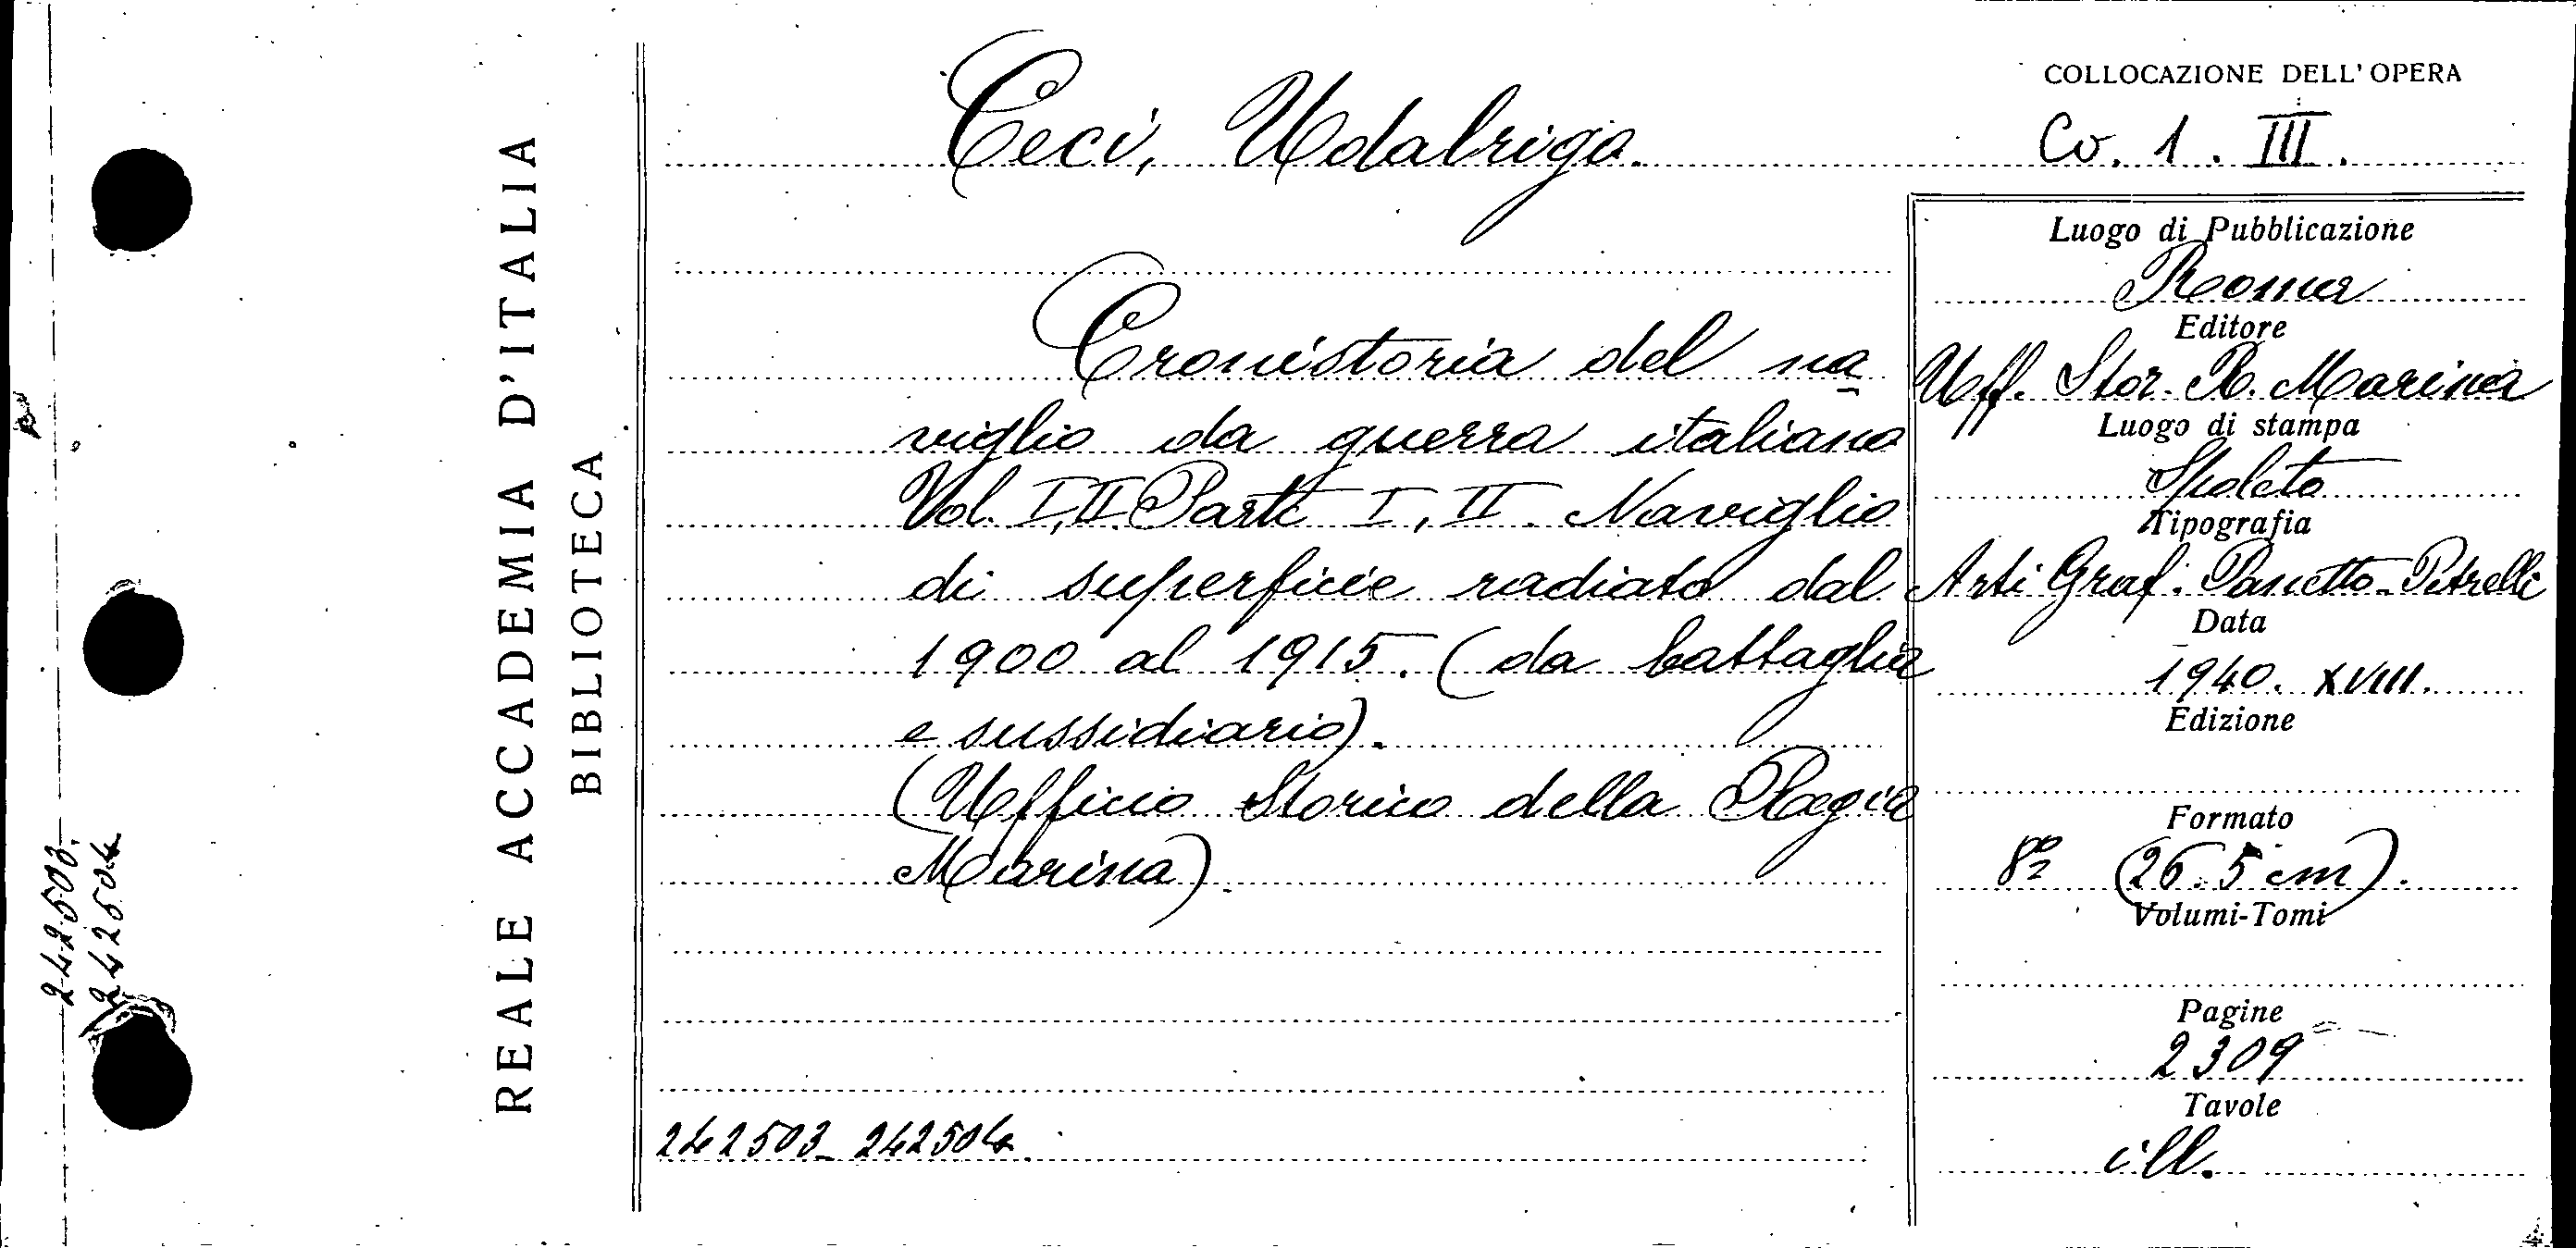 242503.
242504
REALE ACCADEMIA D'ITALIA
BIBLIOTECA
Ceci, Udalrigo.
Cronistoria del na
viglio da guerra italiano
Vol. I, II. Parte I, II. Naviglio
di superficie radiato dal
1900 al 1915. (da battaglia
e sussidiario).
(Ufficio Storico della Regia
Marina).
242503_242504.
COLLOCAZIONE DELL'OPERA
Co. 1. III.
Luogo di Pubblicazione
Roma
Editore
Uff. Stor. R. Marina
Luogo di stampa
Spoleto
Tipografia
Arti Graf. Panetto-Petrelli
Data
1940. XVIII.
Edizione
Formato
8º (26.5 cm).
Volumi-Tomi
Pagine
2309
Tavole
ill.